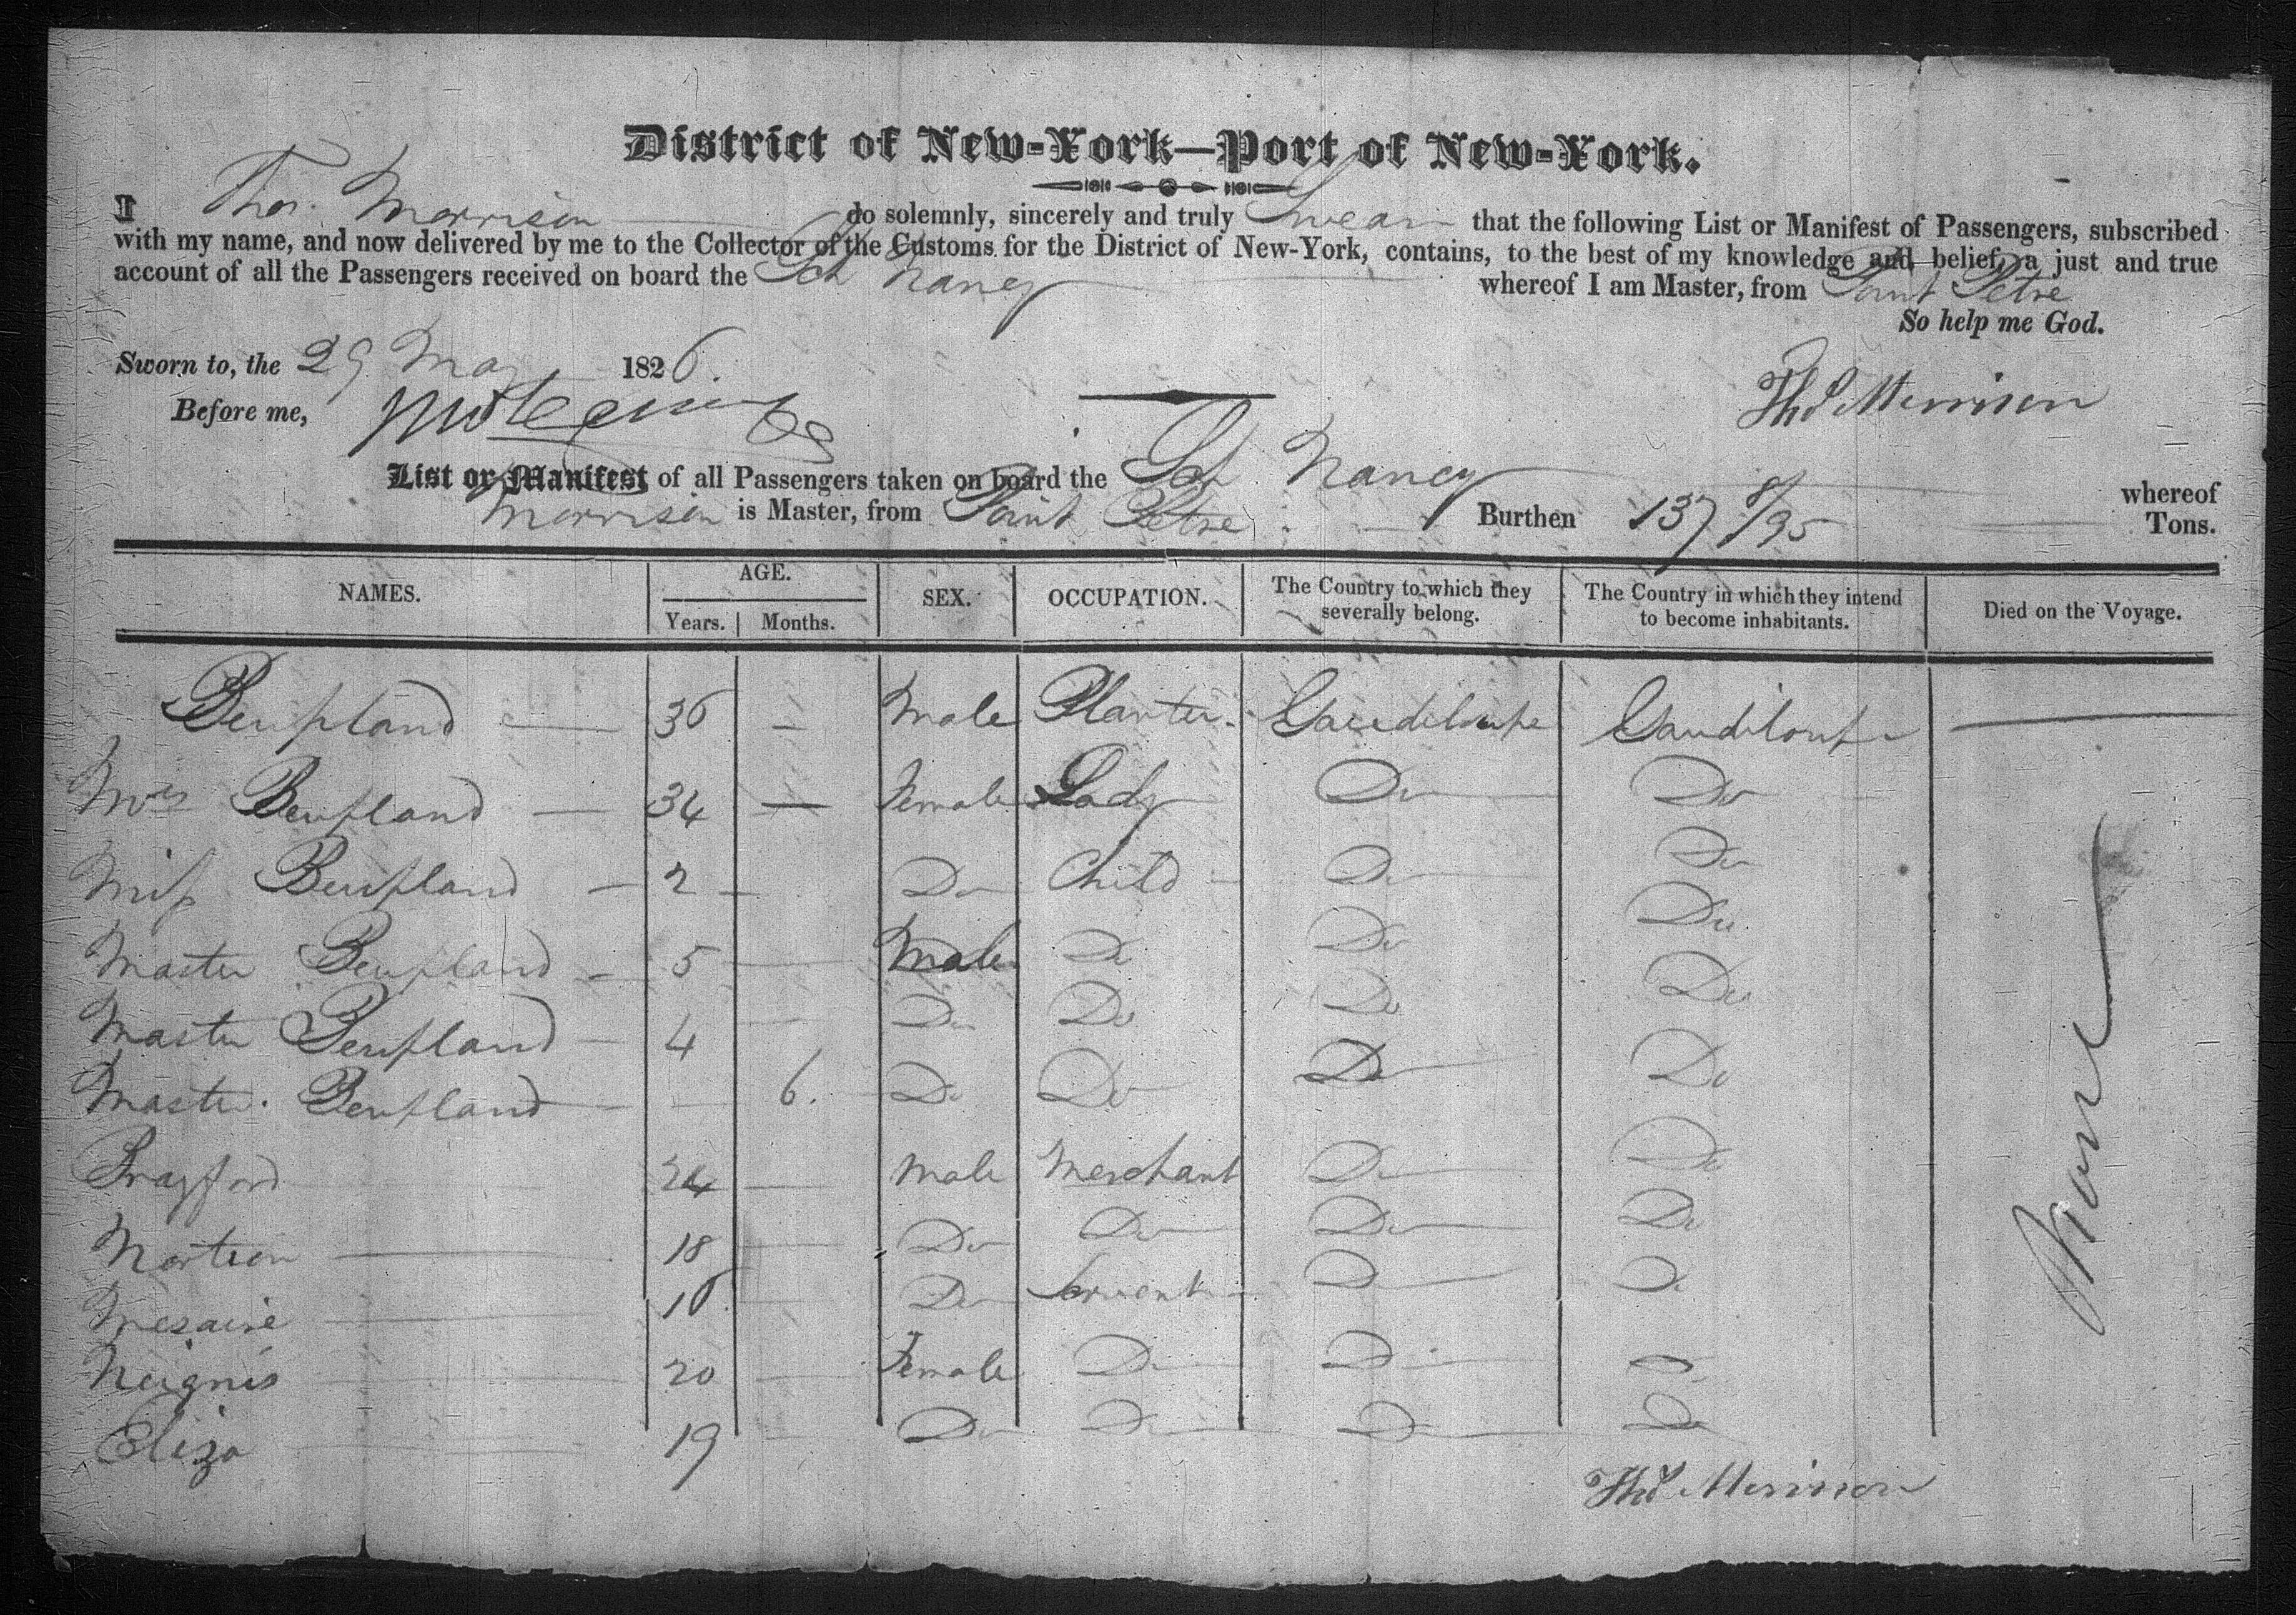 District of New-York—Port of New-York.
I Thos. Morrison do solemnly, sincerely and truly Swear that the following List or Manifest of Passengers, subscribed
with my name, and now delivered by me to the Collector of the Customs for the District of New-York, contains, to the best of my knowledge and belief, a just and true
account of all the Passengers received on board the Sch Nancy whereof I am Master, from Point Petre
So help me God.
Sworn to, the 29 May 1826.
Thos Morrison
Before me,
List or Manifest of all Passengers taken on board the Sch Nancy whereof
Morrison is Master, from Point Petre Burthen 137 8/95 Tons.
NAMES. AGE. SEX. OCCUPATION. The Country to which they severally belong. The Country in which they intend to become inhabitants. Died on the Voyage.
Years. Months.
36 — Male Planter Gaudiloupe Gaudiloupe
Mrs 34 — Female Lady Do Do
Miss 2 Do Child Do Do
Master 5 Male Do Do Do
Master 4 Do Do Do Do
Master 6. Do Do Do Do
24 Male Merchant Do Do
18 Do Do Do Do
Mesaire 16 Do Servent Do Do
20 Female Do Do Do
Eliza 19 Do Do Do Do
None
Thos Morrison